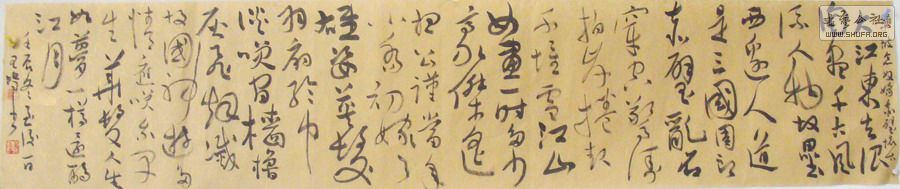 WWW.SHUFA.ORG
大江東去浪
淘盡千古風
流人物故壘
西邊人道
是三國周郎
赤壁亂石
穿空驚濤
拍岸捲起
千堆雪江山
如畫一時多少
豪傑遙
想公瑾當年
小喬初嫁了
雄姿英發
羽扇綸巾
談笑間檣櫓
灰飛煙滅
故國神遊多
情應笑我早
生華髮人生
如夢一樽還酹
江月